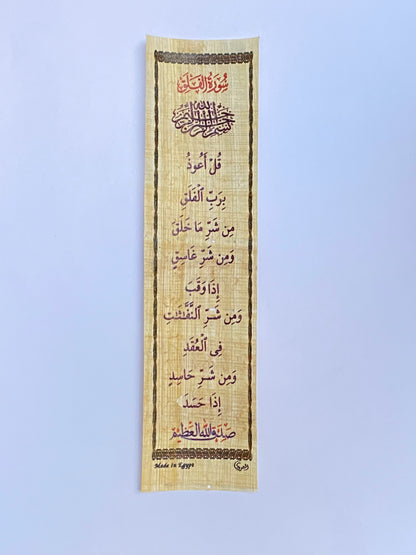 سُورَةُ الْفَلَقِ
بِسْمِ اللَّهِ الرَّحْمَٰنِ الرَّحِيمِ
قُلْ أَعُوذُ
بِرَبِّ ٱلْفَلَقِ
مِن شَرِّ مَا خَلَقَ
وَمِن شَرِّ غَاسِقٍ
إِذَا وَقَبَ
وَمِن شَرِّ ٱلنَّفَّٰثَٰتِ
فِى ٱلْعُقَدِ
وَمِن شَرِّ حَاسِدٍ
إِذَا حَسَدَ
صَدَقَ اللَّهُ الْعَظِيمُ
Made in Egypt